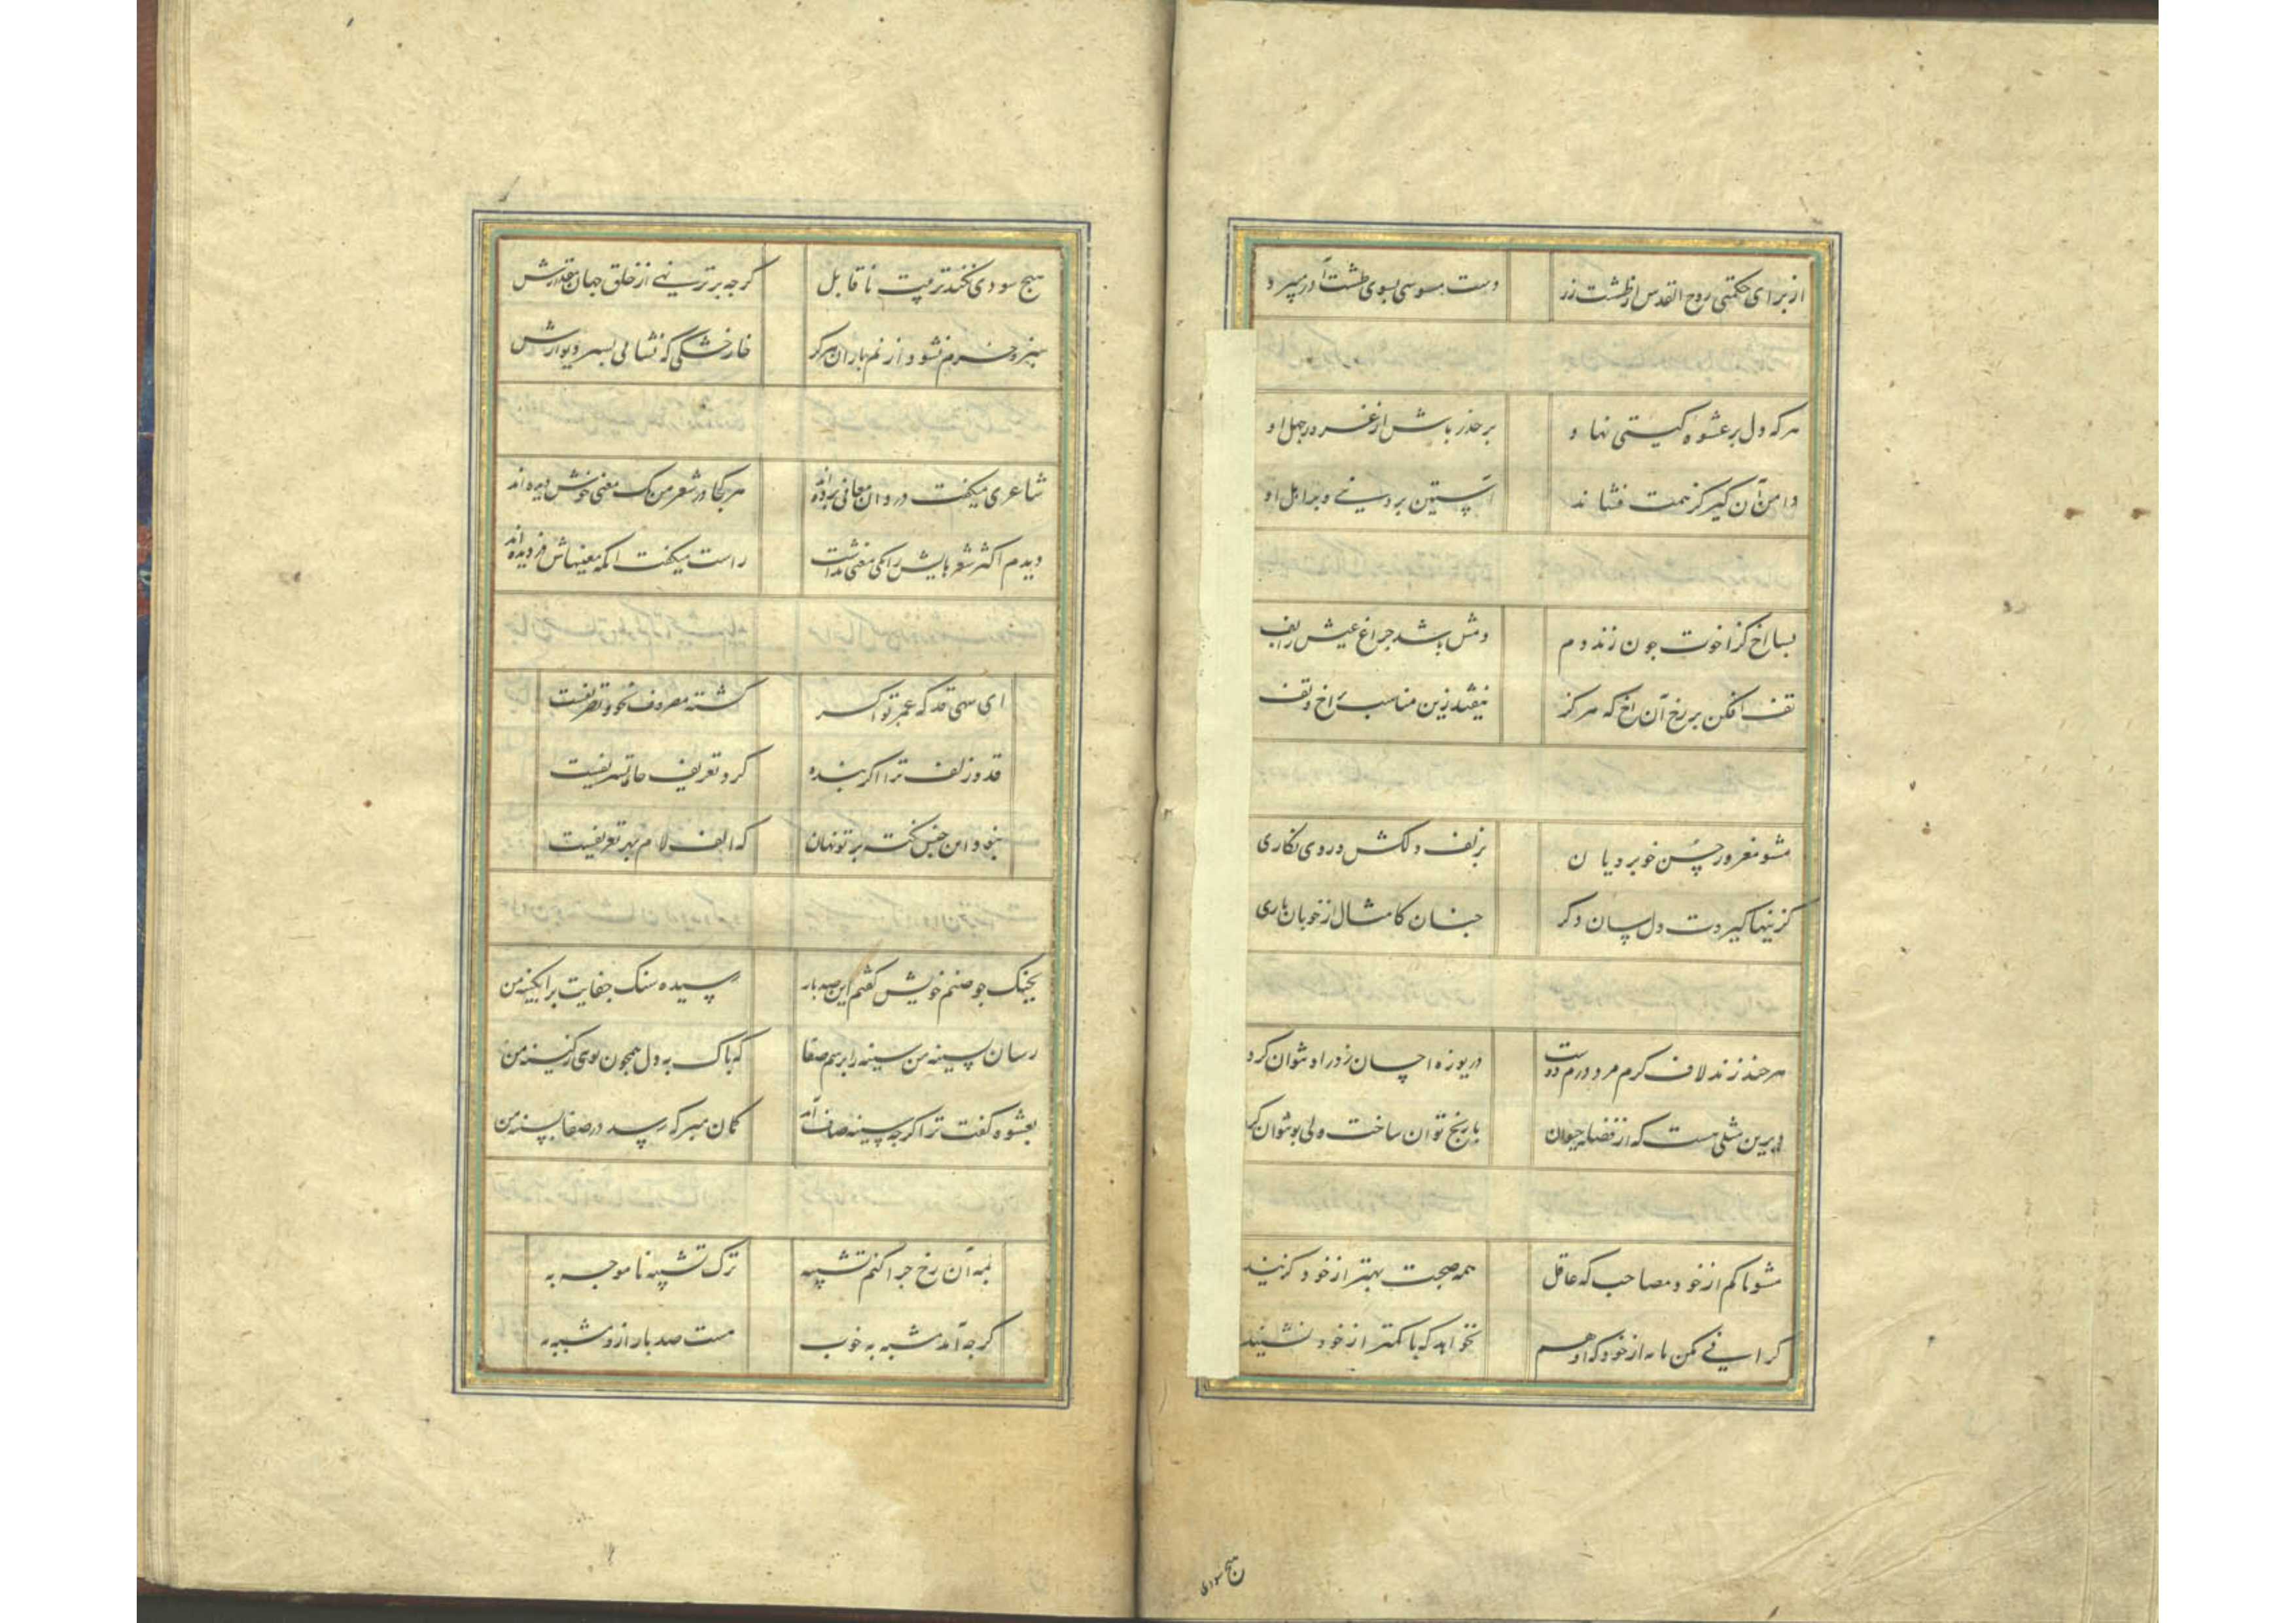 از برای حکمتی روح القدس از طشت زر دست موسی بسوی طشت آذر میبرد
هر که دل بر عشوه گیتی نهاد بر حذر باش از غرور جهل او
دامن آن گیر کز همت فشاند آستین بر دنیی و بر اهل او
بسا اخ کز اخوت چون زند دم دمش باشد چراغ عیش را پف
تف افکن بر رخ آن اخ که هرگز نیفتد زین مناسب تر اخ و تف
مشو مغرور حسن خوبرویان بزلف دلکش و روی نگاری
کزینها گیردت دل سان دگر چنان کامثال از خوبان باری
هر چند زند لاف کرم مرد درم دوست دریوزه احسان ز در او نتوان کرد
دیرین مثلی هست که از فضله حیوان نارنج توان ساخت ولی بو نتوان کرد
مشو با کم از خود مصاحب که عاقل همه صحبت بهتر از خود گزیند
گرانی مکن با به از خود که او هم نخواهد که با کمتر از خود نشیند
هیچ سودی
هیچ سودی نکند تربیت ناقابل گرچه برتر نهی از خلق جهان مقدارش
سبز و خرم نشود از نم باران هرگز خار خشکی که نشانی بسر دیوارش
شاعری میگفت دزدان معانی برده‌اند هر کجا در شعر من یک معنی خوش دیده‌اند
دیدم اکثر شعرهایش را یکی معنی نداشت راست میگفت آنکه معنیهاش دزدیده‌اند
ای سهی قد که عمر تو اکثر گشته مصروف نحو و تصریفست
قد و زلف ترا اگر بنده کرد تعریف جای تشریفست
نبود این جنس نکته بر تو نهان که الف لام بهر تعریفست
بجنگ جو صنم خویش گفتم این صد بار رسیده سنگ جفایت بر آبگینه من
رسان بسینه من سینه را برسم صفا که پاک به دل همچون توی ز کینه من
بعشوه گفت ترا گرچه سینه صاف آمد گمان مبر که رسد در صفا بسینه من
بمه آن رخ چرا کنم تشبیه ترک تشبیه ناموجه به
گرچه آمد مشبه به خوب هست صد بار ازو مشبه به